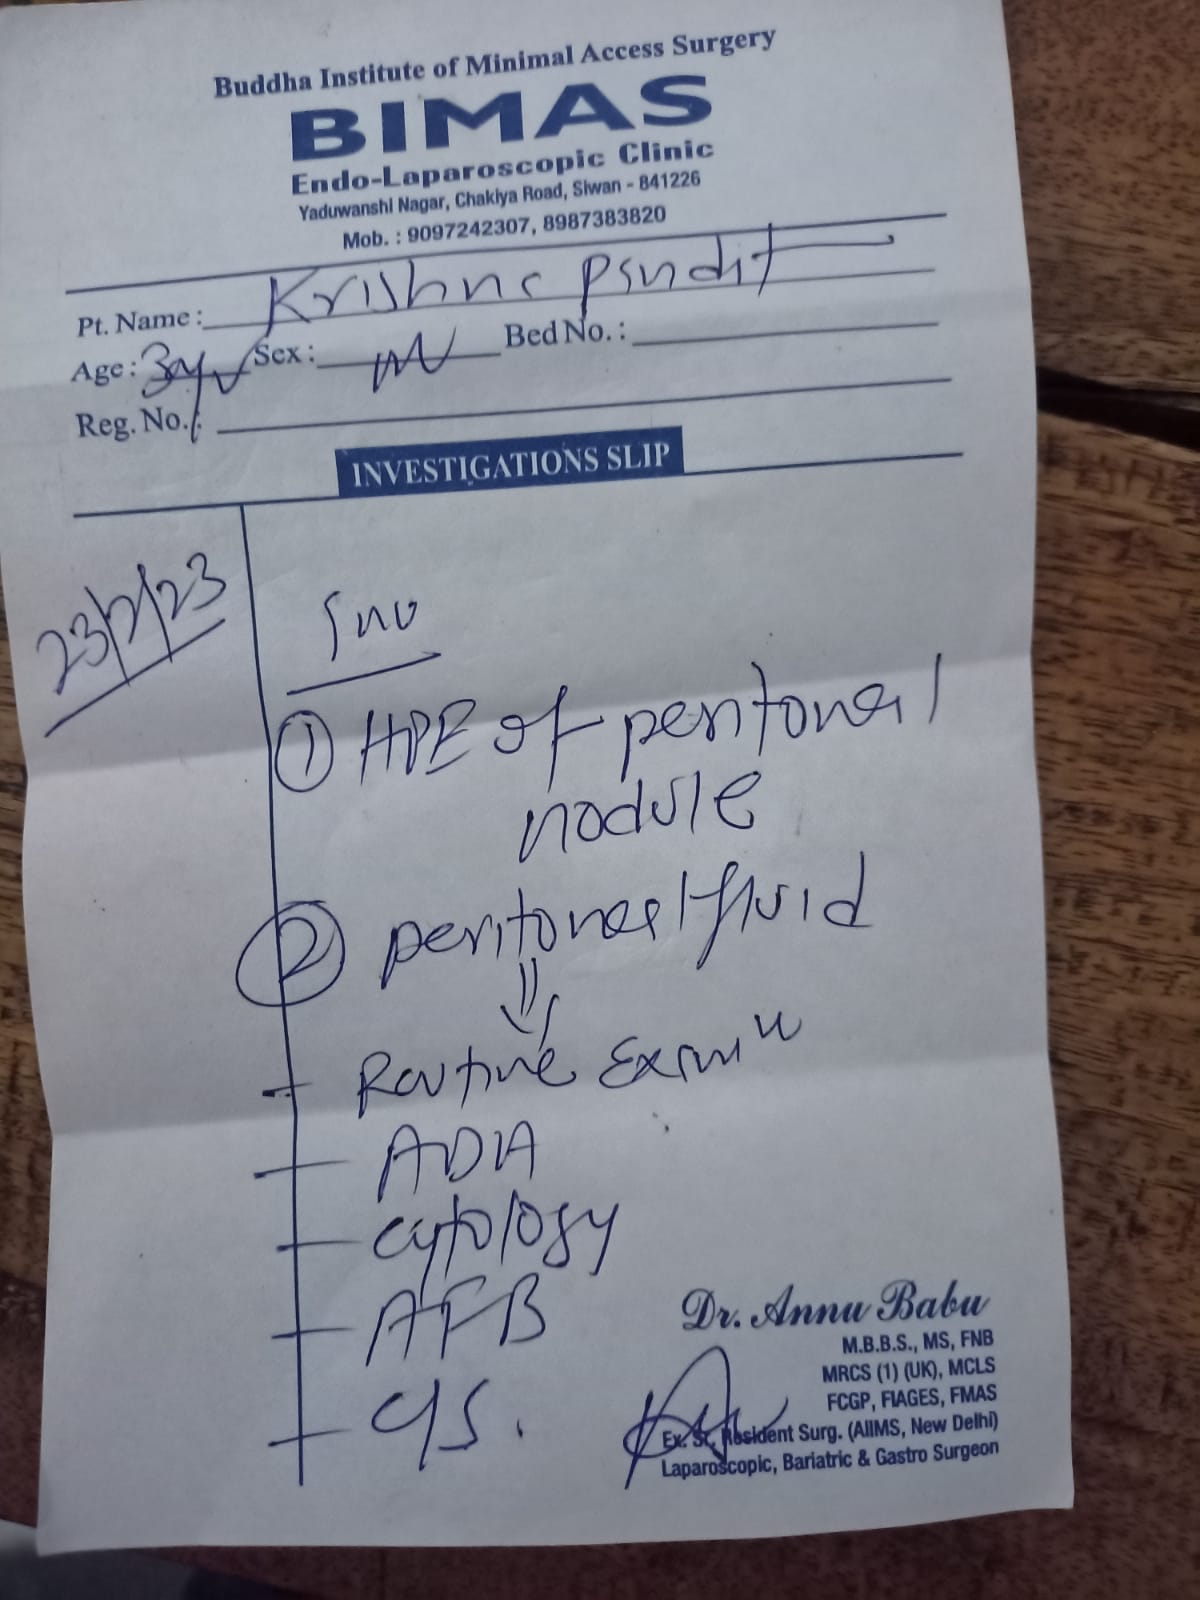 Buddha Institute of Minimal Access Surgery
BIMAS
Endo-Laparoscopic Clinic
Yaduwanshi Nagar, Chakiya Road, Siwan - 841226
Mob. : 9097242307, 8987383820
Pt. Name : Krishna Pandit
Age : Sex : M Bed No. :
Reg. No. :
INVESTIGATIONS SLIP
23/2/23
① HPE of peritoneal
nodule
② peritoneal fluid
⇓
- Routine Exam
- ADA
- cytology
- AFB
- C/S.
Dr. Annu Babu
M.B.B.S., MS, FNB
MRCS (1) (UK), MCLS
FCGP, FIAGES, FMAS
Ex. Sr. Resident Surg. (AIIMS, New Delhi)
Laparoscopic, Bariatric & Gastro Surgeon